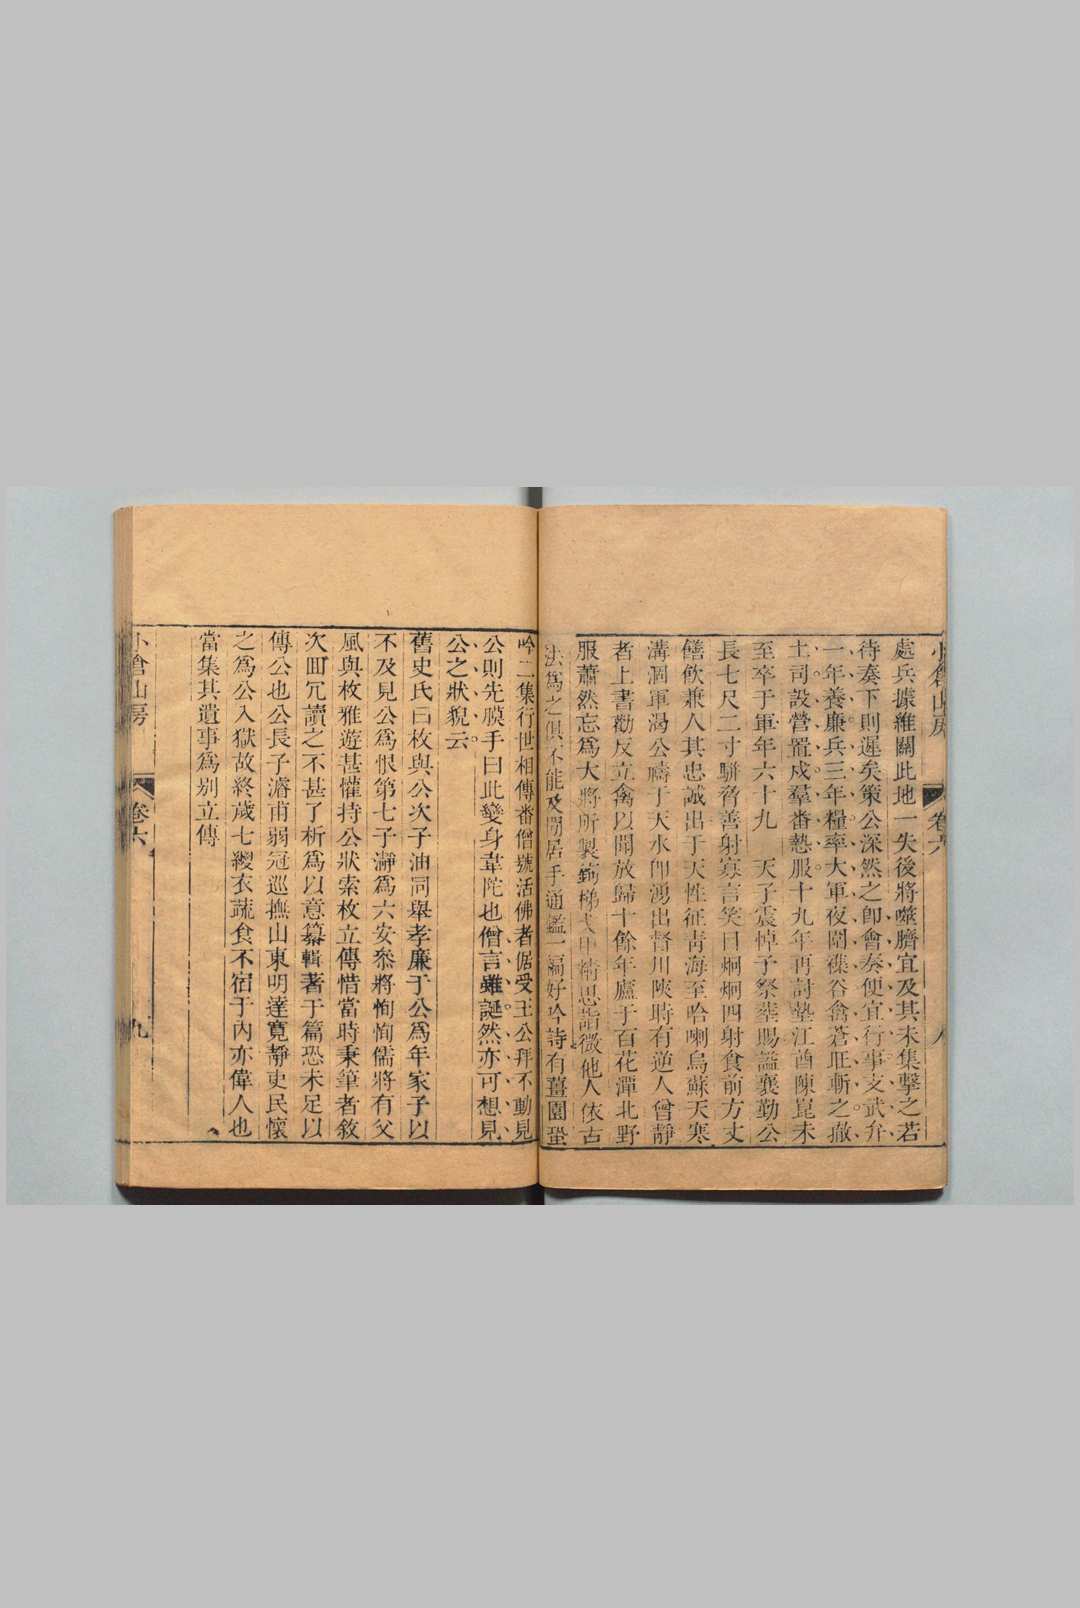 小倉山房
卷六
八
處兵據雜關此地一失後將噬臍宜及其未集擊之若
待奏下則遲矣策公深然之卽會奏便宜行事支武弁
一年養廉兵三年糧率大軍夜圍 谷禽蒼旺斬之撤
土司設營置戍羣番慹服十九年再討墊江酋陳崑未
至卒于軍年六十九 天子震悼予祭葬賜諡襄勤公
長七尺二寸駢脅善射寡言笑目烱烱四射食前方丈
饍飲兼人其忠誠出于天性征青海至哈喇烏蘇天寒
溝涸軍渴公禱于天水卽湧出督川陝時有逆人曾靜
者上書勸反立禽以聞放歸十餘年廬于百花潭北野
服蕭然忘爲大將所製 梯 甲精思詣微他人依古
法爲之俱不能及閒居手通鑑一編好吟詩有薑園蛩
吟二集行世相傳番僧號活佛者倨受王公拜不動見
公則先膜手曰此變身韋陀也僧言雖誕然亦可想見
公之狀貌云
舊史氏曰枚與公次子淯同舉孝廉于公爲年家子以
不及見公爲恨第七子瀞爲六安叅將恂恂儒將有父
風與枚雅遊甚懽持公狀索枚立傳惜當時秉筆者敘
次 冗讀之不甚了析爲以意纂輯著于篇恐未足以
傳公也公長子濬甫弱冠巡撫山東明達寬靜吏民懷
之爲公入獄故終歲七緵衣蔬食不宿于內亦偉人也
當集其遺事爲别立傳
小倉山房
卷六
九